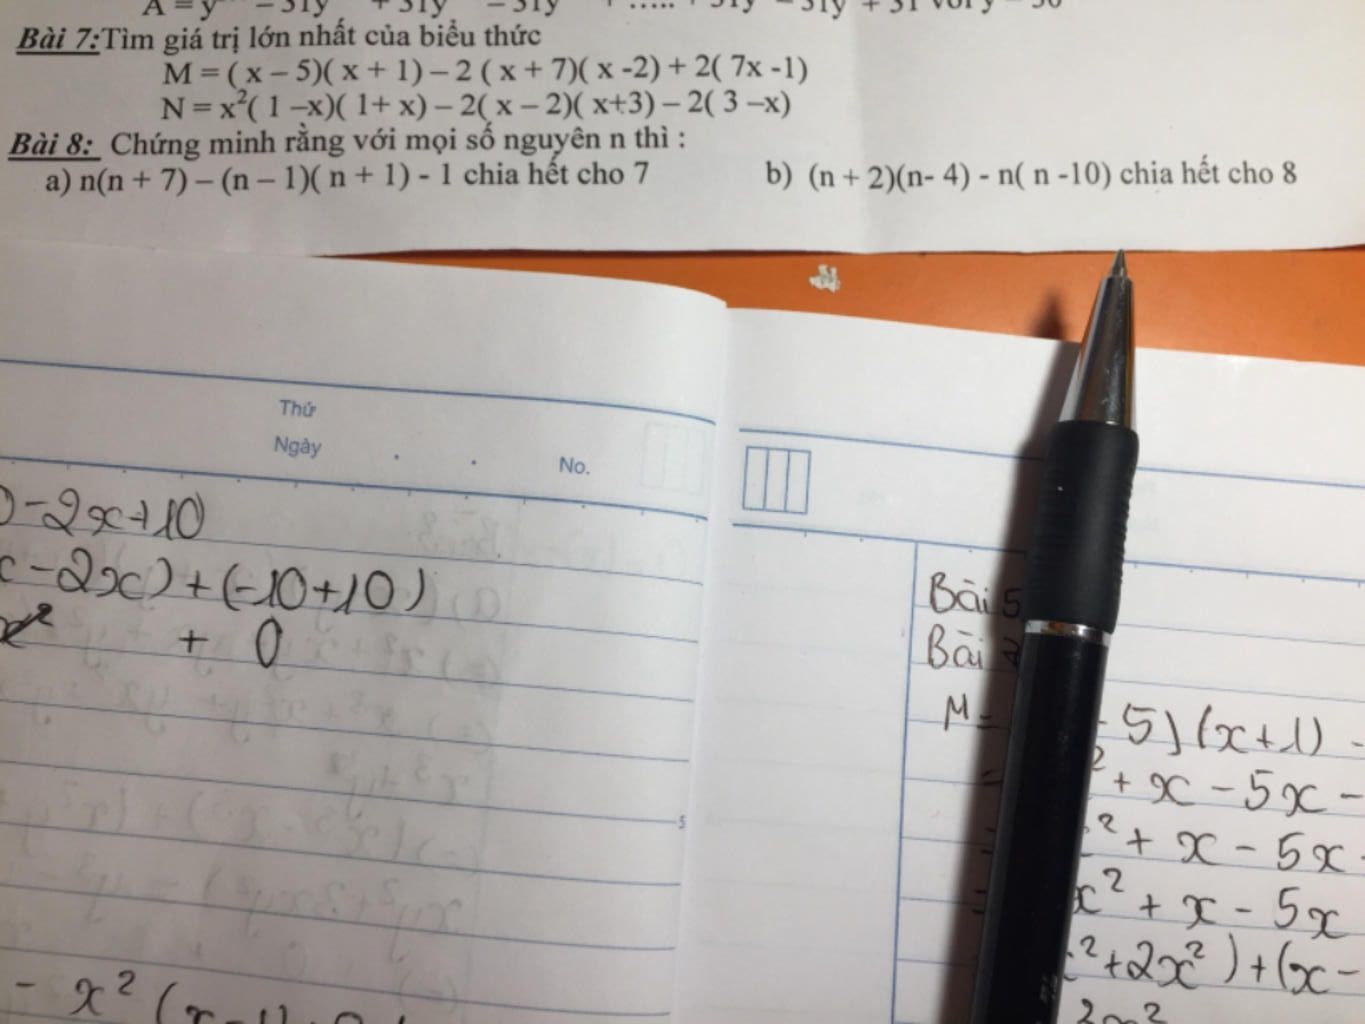 Bài 7:Tìm giá trị lớn nhất của biểu thức
M = ( x – 5)( x + 1) – 2 ( x + 7)( x -2) + 2( 7x -1)
N = x²( 1 –x)( 1+ x) – 2( x – 2)( x+3) – 2( 3 –x)
Bài 8: Chứng minh rằng với mọi số nguyên n thì :
a) n(n + 7) – (n – 1)( n + 1) - 1 chia hết cho 7 b) (n + 2)(n- 4) - n( n -10) chia hết cho 8
Thứ
Ngày . . No.
-2x+10
-2x) + (-10+10)
x² + 0
5
- x² (x-1)
Bài 5
Bài
M = - 5)(x+1) -
+ x - 5x -
² + x - 5x
x² + x - 5x
²+2x²) + (x-